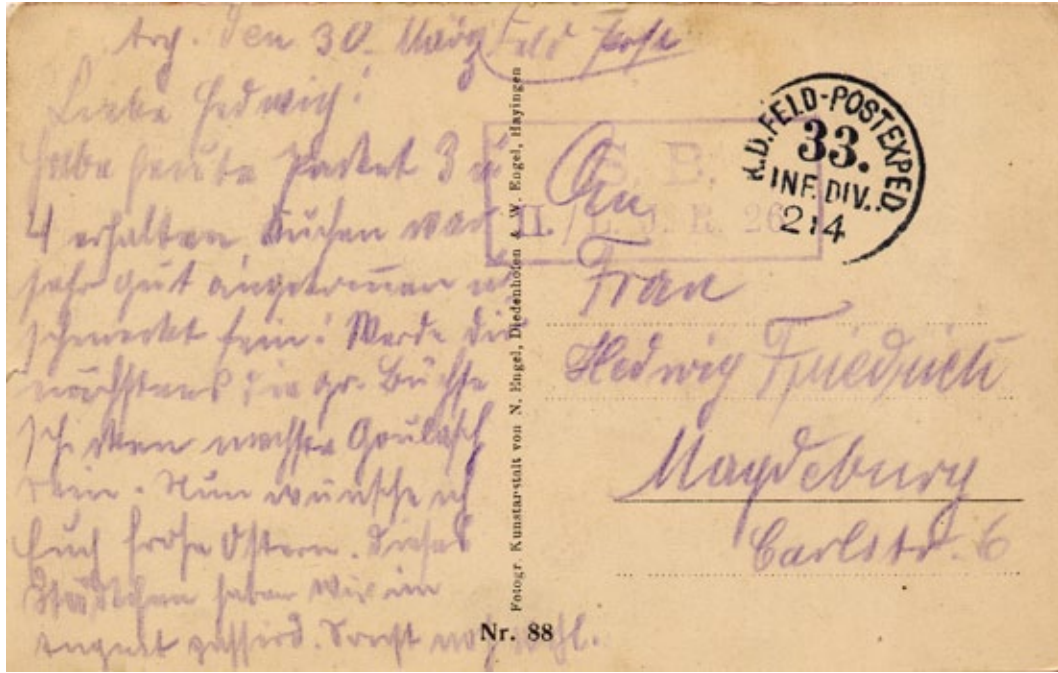 Arg. den 30. März
Feld Post
Liebe Hedwig!
Habe heute Packet 3 u
4 erhalten Kuchen war
sehr gut angekommen u
schmeckt fein! Werde dir
nächstens die gr. Büchse
schicken Goulasch
rein. Nun wünsche ich
Euch frohe Ostern. Dieses
Städtchen haben wir im
August passird. Sonst noch wohl.
Fotogr. Kunstanstalt von N. Engel, Diedenhofen & W. Engel, Hayingen
Nr. 88
S. B.
II. / L. I. R. 26
K.D. FELD-POSTEXPED.
33.
INF. DIV.
2 4
An
Frau
Hedwig Friedrich
Magdeburg
Carlstr. 6